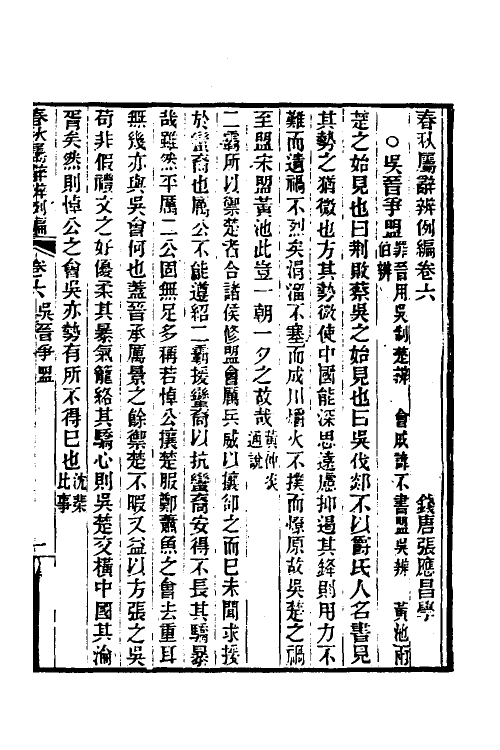 春秋屬辭辨例編卷六
錢唐張應昌學
○吳晉爭盟 罪晉用吳制楚辨 會戚諱不書盟吳辨 黃池兩伯辨
楚之始見也曰荆敗蔡吳之始見也曰吳伐郯不以爵氏人名書見
其勢之猶微也方其勢微使中國能深思遠慮抑遏其鋒則用力不
難而遺禍不烈矣涓溜不塞而成川爝火不撲而燎原故吳楚之禍
至盟宋盟黃池此豈一朝一夕之故哉 黃仲炎通說
二霸所以禦楚者合諸侯修盟會厲兵威以攘卻之而已未聞求援
於蠻裔也厲公不能遵紹二霸援蠻裔以抗蠻裔安得不長其驕暴
哉雖然平厲二公固無足多稱若悼公攘楚服鄭蕭魚之會去重耳
無幾亦與吳會何也蓋晉承厲景之餘禦楚不暇又益以方張之吳
苟非假禮文之好優柔其暴氣籠絡其驕心則吳楚交橫中國其淪
胥矣然則悼公之會吳亦勢有所不得已也 沈棐此事
春秋屬辭辨例編 卷六 吳晉爭盟 一